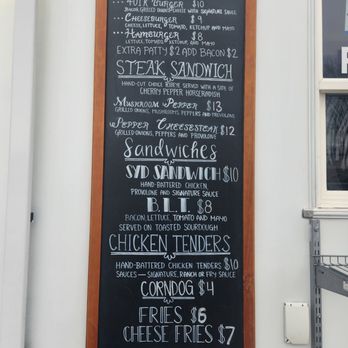 BURGER $10
BACON, GRILLED ONIONS, CHEESE WITH SIGNATURE SAUCE
CHEESEBURGER $9
CHEESE, LETTUCE, TOMATO, KETCHUP AND MAYO
HAMBURGER $8
LETTUCE, TOMATO, KETCHUP, AND MAYO
EXTRA PATTY $2 ADD BACON $2
STEAK SANDWICH
HAND-CUT CHOICE RIBEYE SERVED WITH A SIDE OF
CHERRY PEPPER HORSERADISH
MUSHROOM PEPPER $13
GRILLED ONIONS, MUSHROOMS, PEPPERS AND PROVOLONE
PEPPER CHEESESTEAK $12
GRILLED ONIONS, PEPPERS AND PROVOLONE
Sandwiches
SYD SANDWICH $10
HAND-BATTERED CHICKEN,
PROVOLONE AND SIGNATURE SAUCE
B.L.T. $8
BACON, LETTUCE, TOMATO AND MAYO
SERVED ON TOASTED SOURDOUGH
CHICKEN TENDERS
HAND-BATTERED CHICKEN TENDERS $10
SAUCES—SIGNATURE, RANCH OR FRY SAUCE
CORNDOG $4
FRIES $6
CHEESE FRIES $7